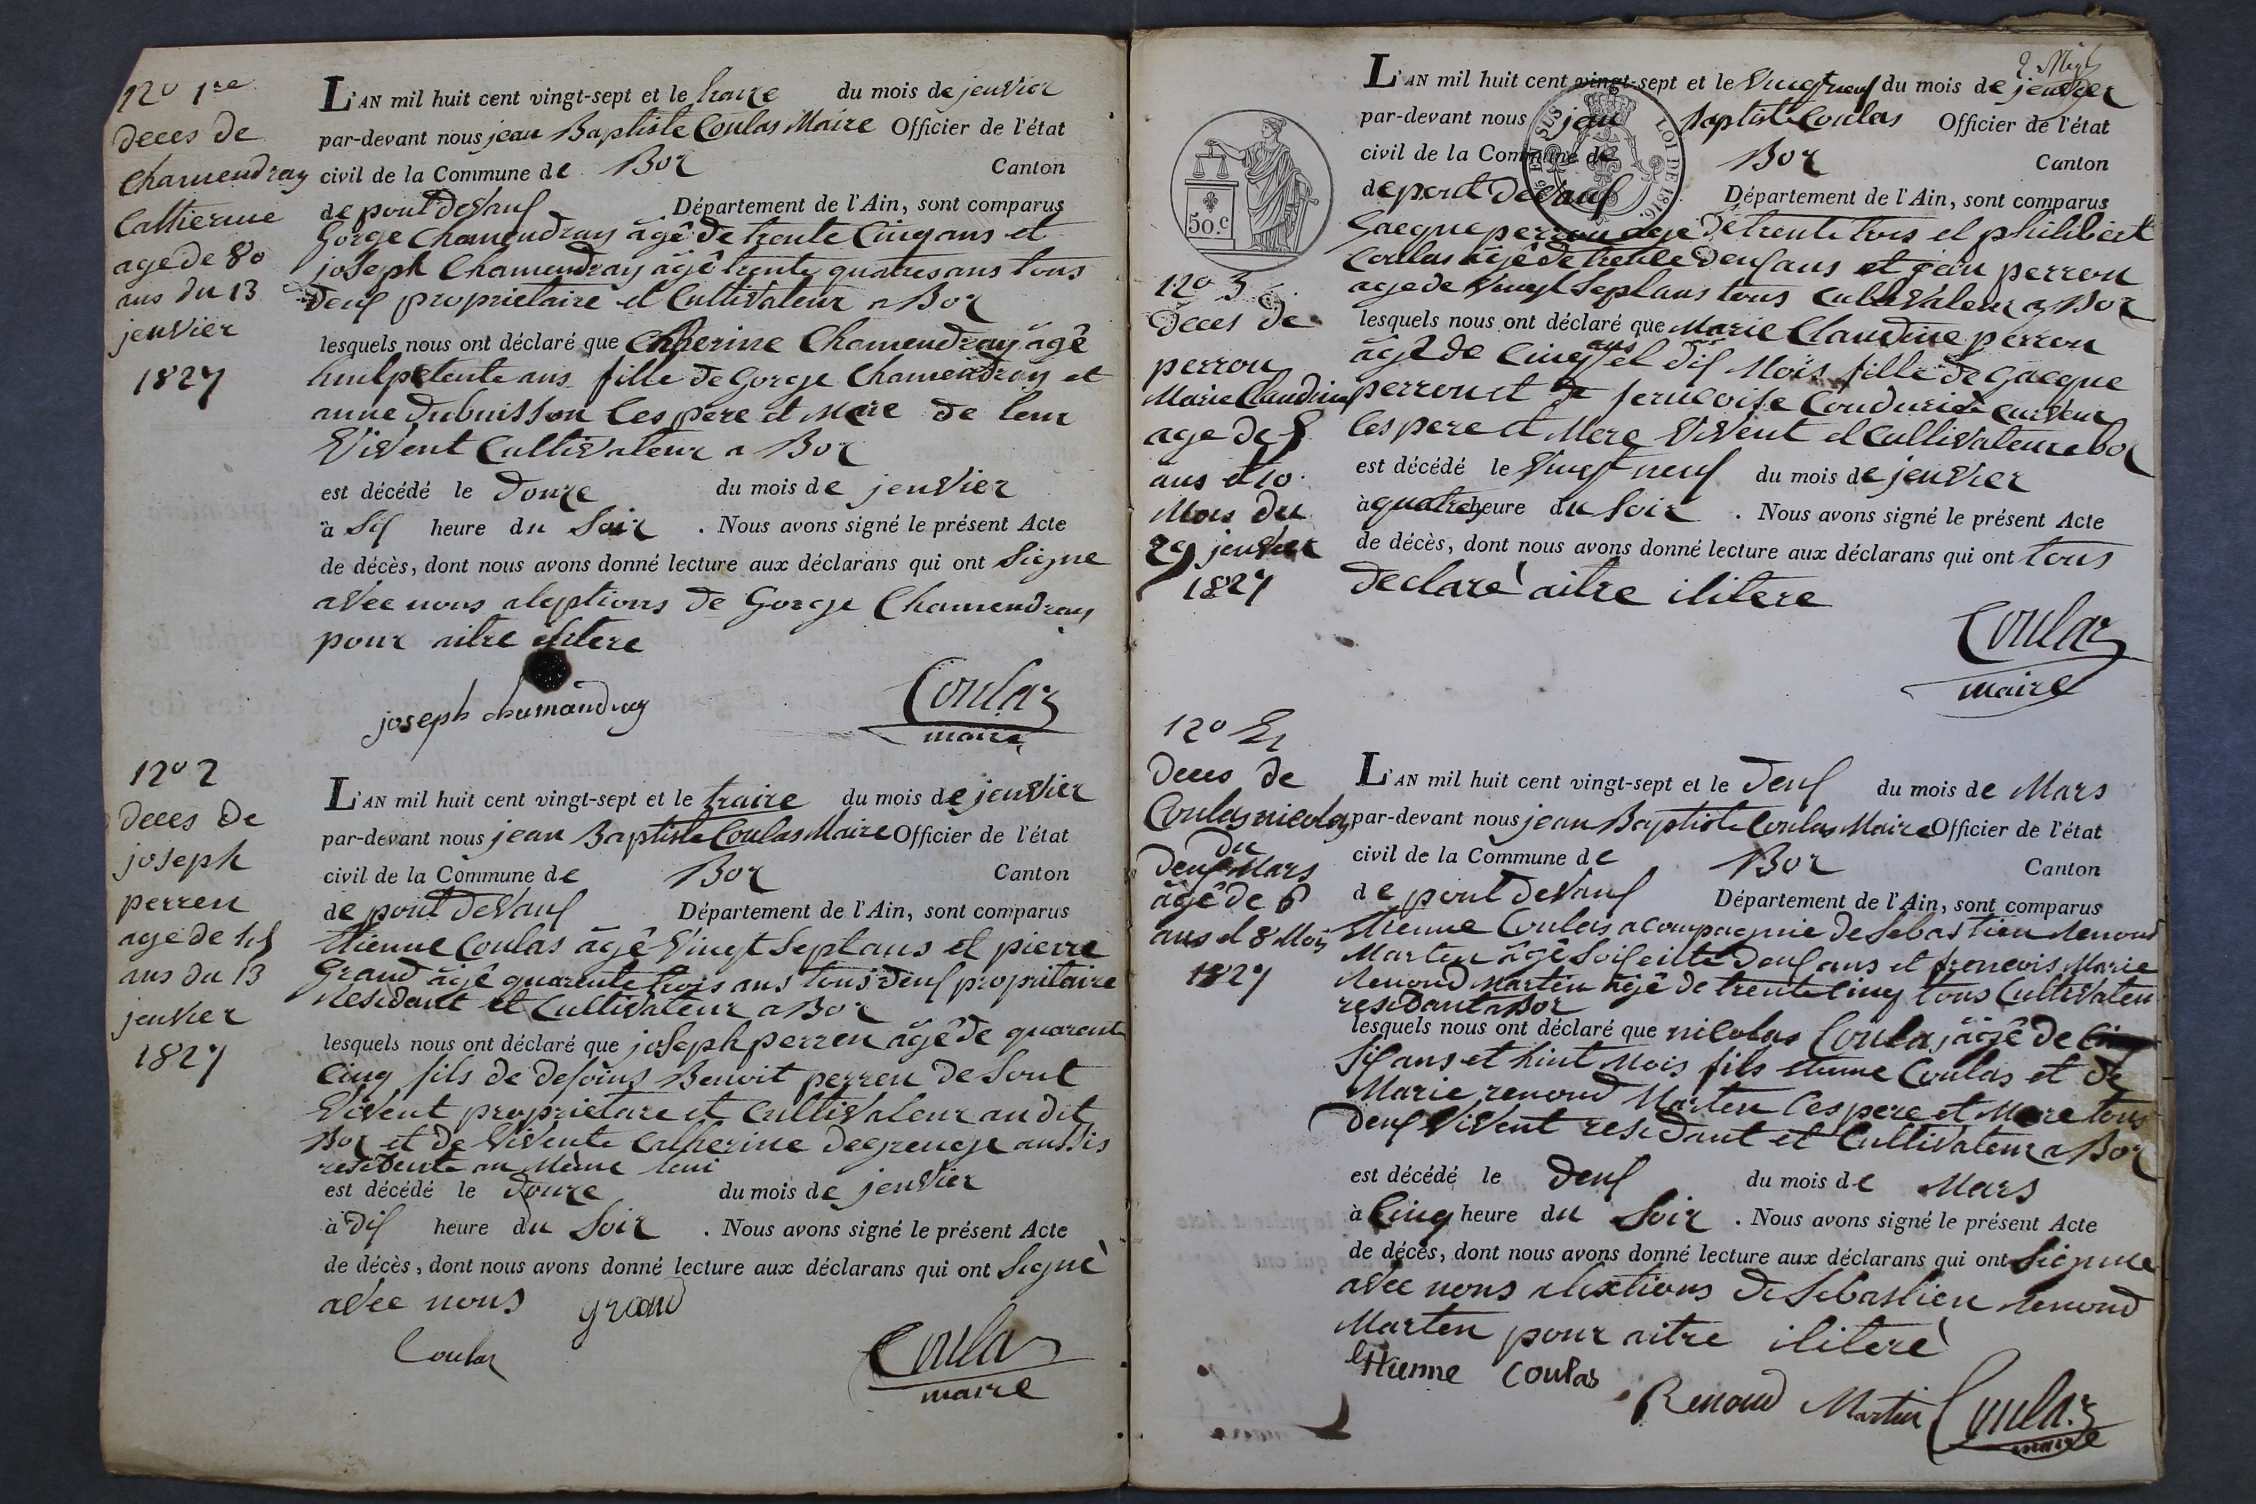 No 1re
deces de
chamendray
Catherine
age de 80
ans du 13
jenvier
1827
L'AN mil huit cent vingt-sept et le traize du mois de jenvier
par-devant nous jean Baptiste Coulas Maire Officier de l'état
civil de la Commune de Boz Canton
de pont deVaux Département de l'Ain, sont comparus
Gorge Chamendray âgê de trente Cinq ans et
joseph Chamendray âgê trente quatres ans tous
deux proprietaire et Cultivateur a Boz
lesquels nous ont déclaré que Catherine Chamendray âgê
ans fille de Gorge Chamendray et
anne dubuisson Ces pere et Mere de leur
Vivent Cultivateur a Boz
est décédé le douze du mois de jenvier
à Six heure du Soir . Nous avons signé le présent Acte
de décès, dont nous avons donné lecture aux déclarans qui ont Signe
avec nous aleptions de Gorge Chamendray
pour aitre
joseph chamandray
Coulaz
maire
No 2
deces de
joseph
perren
age de 45
ans du 13
jenvier
1827
L'AN mil huit cent vingt-sept et le traize du mois de jenvier
par-devant nous jean Baptiste Coulas Maire Officier de l'état
civil de la Commune de Boz Canton
de pont deVaux Département de l'Ain, sont comparus
Etienne Coulas âgê Vingt Sept ans et pierre
Grand âgê quarente trois ans tous deux propritaire
Residant et Cultivateur a Boz
lesquels nous ont déclaré que joseph perren âgê de quarent
Cinq fils de defoins Benoit perren de Sont
Vivent proprietare et Cultivateur au dit
Boz et de Vivente Catherine degrenge aussis
residente au Même leui
est décédé le douze du mois de jenvier
à dix heure du Soir . Nous avons signé le présent Acte
de décès, dont nous avons donné lecture aux déclarans qui ont Signè
avec nous grand
Coulaz
Coulaz
maire
L'AN mil huit cent vingt-sept et le Vingt neuf du mois de jenvier
par-devant nous jean Baptiste Coulas Officier de l'état
civil de la Commune de Boz Canton
de pont deVaux Département de l'Ain, sont comparus
EN SUS
LOI DE 1816.
50.c
Gacque perron age de trente trois et philibert
Coulas âgê de trente deux ans et jean perron
age de Vingt Sept ans tous Cultivateur a Boz
No 3
deces de
perron
Marie Claudine
age de 5
ans et 10
Mois du
29 jenvier
1827
lesquels nous ont déclaré que Marie Claudine perron
âgê de Cinq ans et dix Mois fille de Gacque
perron et de
Ces pere et Mere Vivent et Cultivateur a boz
est décédé le Vingt neuf du mois de jenvier
à quatre heure du Soir . Nous avons signé le présent Acte
de décès, dont nous avons donné lecture aux déclarans qui ont tous
declarè aitre ilitere
Coulaz
maire
No 4
deces de
Coulas nicolas
du
deux Mars
âgê de 6
ans et 8 Mois
1827
L'AN mil huit cent vingt-sept et le deux du mois de Mars
par-devant nous jean Baptiste Coulas Maire Officier de l'état
civil de la Commune de Boz Canton
de pont deVaux Département de l'Ain, sont comparus
Etienne Coulas acompagnie de Sebastien Renoud
Marten âgê Soiseinte deux ans et frencois Marie
Renoud Marten âgê de trente Cinq tous Cultivateu
residant a Boz
lesquels nous ont déclaré que nicolas Coulas âgê de
Six ans et huit Mois fils etienne Coulas et de
Marie renoud Marten Ces pere et Mere tous
deux Vivent residant et Cultivateur a Boz
est décédé le deux du mois de Mars
à Cinq heure du Soir . Nous avons signé le présent Acte
de décès, dont nous avons donné lecture aux déclarans qui ont Signne
avec nous alextions de Sebastien Renoud
Marten pour aitre ilitere
Etienne Coulas
Renoud Martin
Coulaz
maire